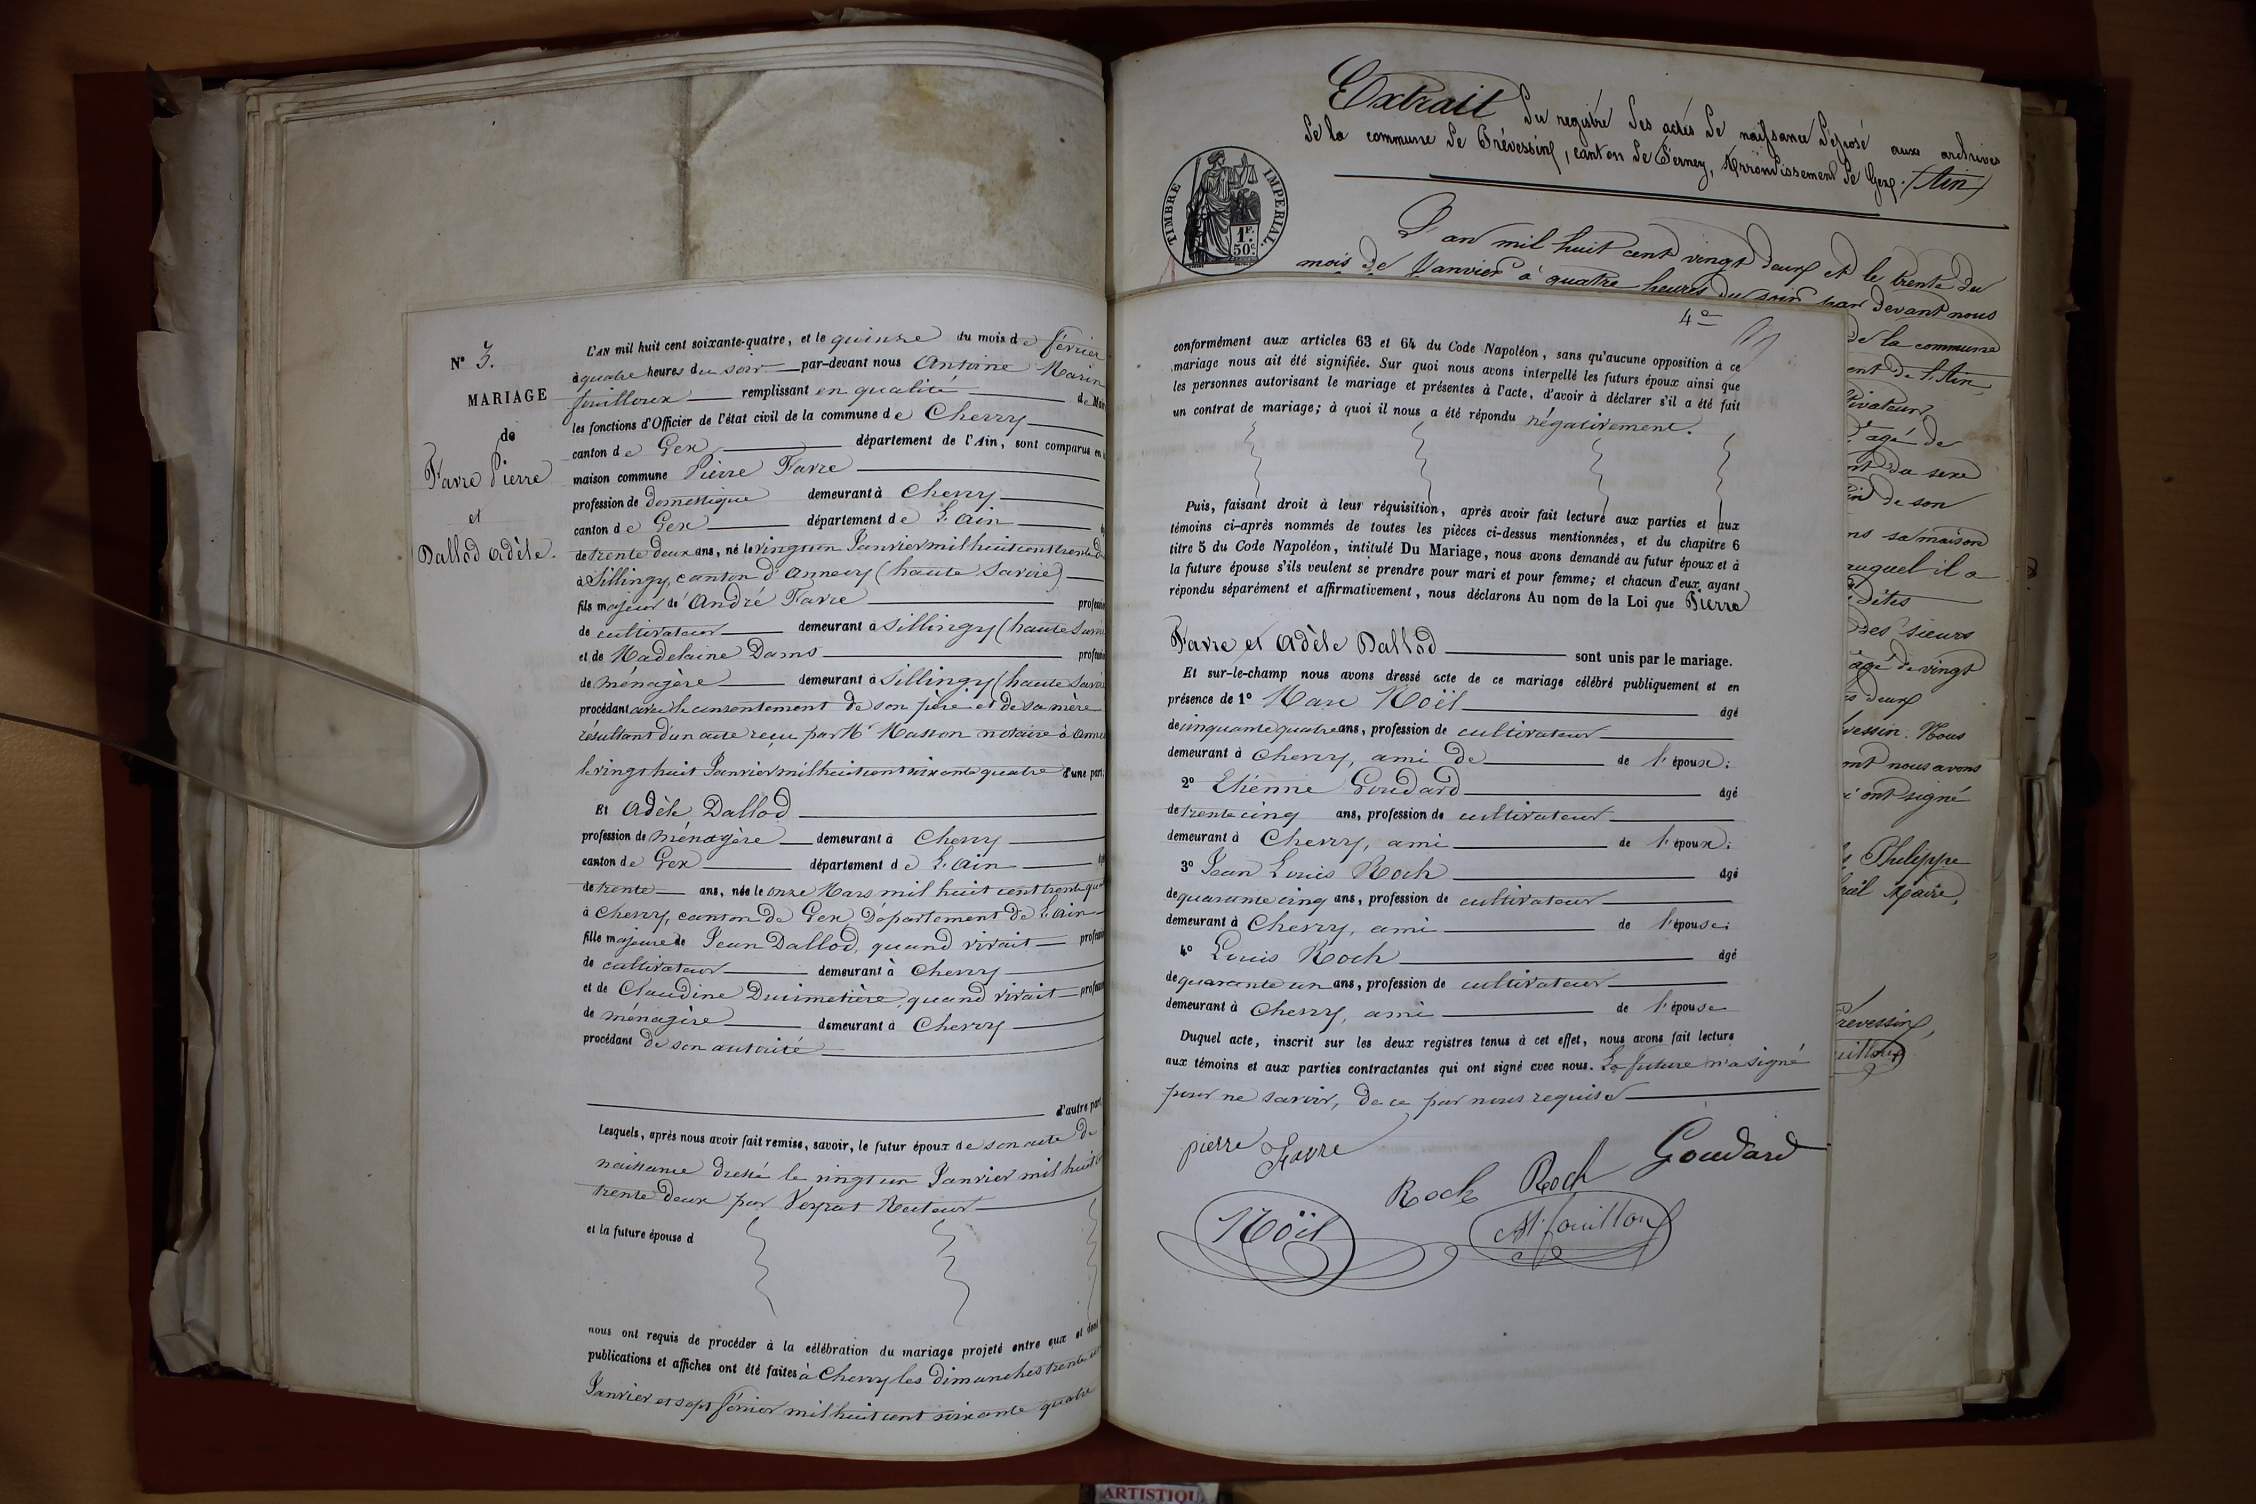 N° 3.
MARIAGE
de
Favre Pierre
et
Dallod Adèle.
L'AN mil huit cent soixante-quatre, et le quinze du mois de février
à quatre heures du soir par-devant nous Antoine Marin
fouilloux remplissant en qualité de Mai
les fonctions d'Officier de l'état civil de la commune de Chevry
canton de Gex département de l'Ain, sont comparus en
maison commune Pierre Favre
profession de domestique demeurant à Chevry
canton de Gex département de l'Ain
de trente deux ans, né le vingt un Janvier mil huit cent trente
à Sillingy, canton d'Annecy (haute Savoie)
fils majeur de André Favre profession
de cultivateur demeurant à Sillingy (haute Savoie
et de Madelaine Dams profession
de ménagère demeurant à Sillingy (haute Savoie
procédant avec le consentement de son père et de sa mère
résultant d'un acte reçu par Me Masson notaire à Anne
le vingt huit Janvier mil huit cent soixante quatre d'une part;
Et Adèle Dallod
profession de ménagère demeurant à Chevry
canton de Gex département de l'Ain
de trente ans, née le onze Mars mil huit cent trente qua
à Chevry, canton de Gex, Département de l'Ain
fille majeure de Jean Dallod, quand vivait profession
de cultivateur demeurant à Chevry
et de Claudine Ducimetière, quand vivait profession
de ménagère demeurant à Chevry
procédant de son autorité
d'autre part
Lesquels, après nous avoir fait remise, savoir, le futur époux de son acte de
naissance dressé le vingt un Janvier mil huit
trente deux par Recteur
et la future épouse d
nous ont requis de procéder à la célébration du mariage projeté entre eux et dont
publications et affiches ont été faites à Chevry les dimanches trente un
Janvier et sept février mil huit cent soixante quatre
Extrait du registre des actes de naissance déposé aux archives
de la commune de Prévessin, canton de Ferney, Arrondissement de Gex. (Ain)
TIMBRE IMPERIAL.
1F.
50c.
L'an mil huit cent vingt deux et le trente du
mois de Janvier à quatre heures du soir par devant nous
de la commune
ent de l'Ain,
tivateur
âgé de
nt du sexe
de son
ns sa maison
auquel il a
dites
des sieurs
âgé de vingt
deux
vessin. Nous
ont nous avons
i ont signé
Philippe
Maire,
revessin,
4e
conformément aux articles 63 et 64 du Code Napoléon, sans qu'aucune opposition à ce
mariage nous ait été signifiée. Sur quoi nous avons interpellé les futurs époux ainsi que
les personnes autorisant le mariage et présentes à l'acte, d'avoir à déclarer s'il a été fait
un contrat de mariage; à quoi il nous a été répondu négativement.
Puis, faisant droit à leur réquisition, après avoir fait lecture aux parties et aux
témoins ci-après nommés de toutes les pièces ci-dessus mentionnées, et du chapitre 6
titre 5 du Code Napoléon, intitulé Du Mariage, nous avons demandé au futur époux et à
la future épouse s'ils veulent se prendre pour mari et pour femme; et chacun d'eux ayant
répondu séparément et affirmativement, nous déclarons Au nom de la Loi que Pierre
Favre et Adèle Dallod sont unis par le mariage.
Et sur-le-champ nous avons dressé acte de ce mariage célébré publiquement et en
présence de 1° Marc Noël âgé
de cinquante quatre ans, profession de cultivateur
demeurant à Chevry, ami de de l'époux;
2° Etienne Goudard âgé
de trente cinq ans, profession de cultivateur
demeurant à Chevry, ami de l'époux;
3° Jean Louis Roch âgé
de quarante cinq ans, profession de cultivateur
demeurant à Chevry, ami de l'épouse;
4° Louis Roch âgé
de quarante un ans, profession de cultivateur
demeurant à Chevry, ami de l'épouse
Duquel acte, inscrit sur les deux registres tenus à cet effet, nous avons fait lecture
aux témoins et aux parties contractantes qui ont signé avec nous. La future n'a signé
pour ne savoir, de ce par nous requise
pierre Favre
Roch Roch Goudard
Noël
AM fouilloux
ARTISTIQU